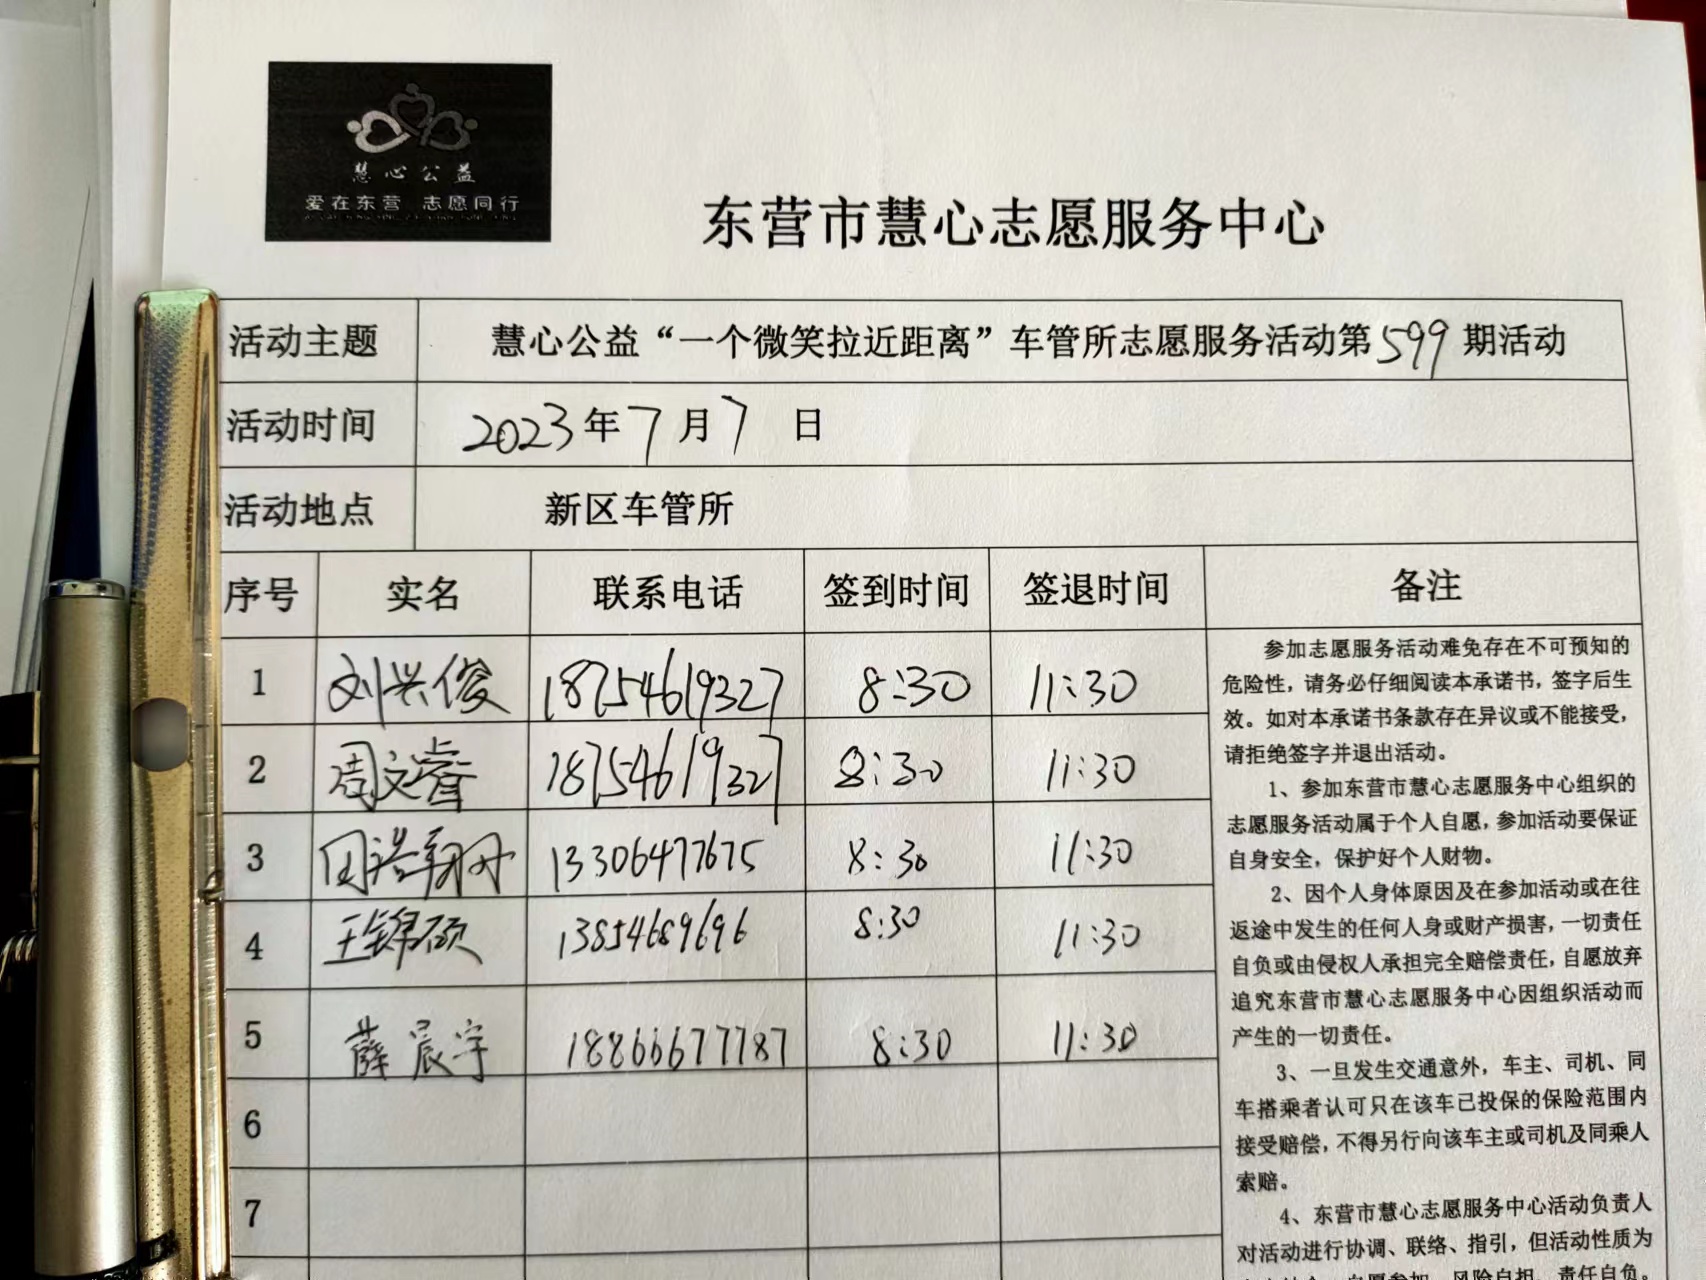 慧心公益
爱在东营 志愿同行
东营市慧心志愿服务中心
活动主题 慧心公益“一个微笑拉近距离”车管所志愿服务活动第599期活动
活动时间 2023年7月7日
活动地点 新区车管所
序号 实名 联系电话 签到时间 签退时间 备注
1 刘兴俊 18754619327 8:30 11:30
2 周文睿 18754619327 8:30 11:30
3 13306477675 8:30 11:30
4 王锦硕 13854689696 8:30 11:30
5 薛宸宇 18866677787 8:30 11:30
6
7
参加志愿服务活动难免存在不可预知的
危险性，请务必仔细阅读本承诺书，签字后生
效。如对本承诺书条款存在异议或不能接受，
请拒绝签字并退出活动。
1、参加东营市慧心志愿服务中心组织的
志愿服务活动属于个人自愿，参加活动要保证
自身安全，保护好个人财物。
2、因个人身体原因及在参加活动或在往
返途中发生的任何人身或财产损害，一切责任
自负或由侵权人承担完全赔偿责任，自愿放弃
追究东营市慧心志愿服务中心因组织活动而
产生的一切责任。
3、一旦发生交通意外，车主、司机、同
车搭乘者认可只在该车已投保的保险范围内
接受赔偿，不得另行向该车主或司机及同乘人
索赔。
4、东营市慧心志愿服务中心活动负责人
对活动进行协调、联络、指引，但活动性质为
自愿参加、风险自担、责任自负。